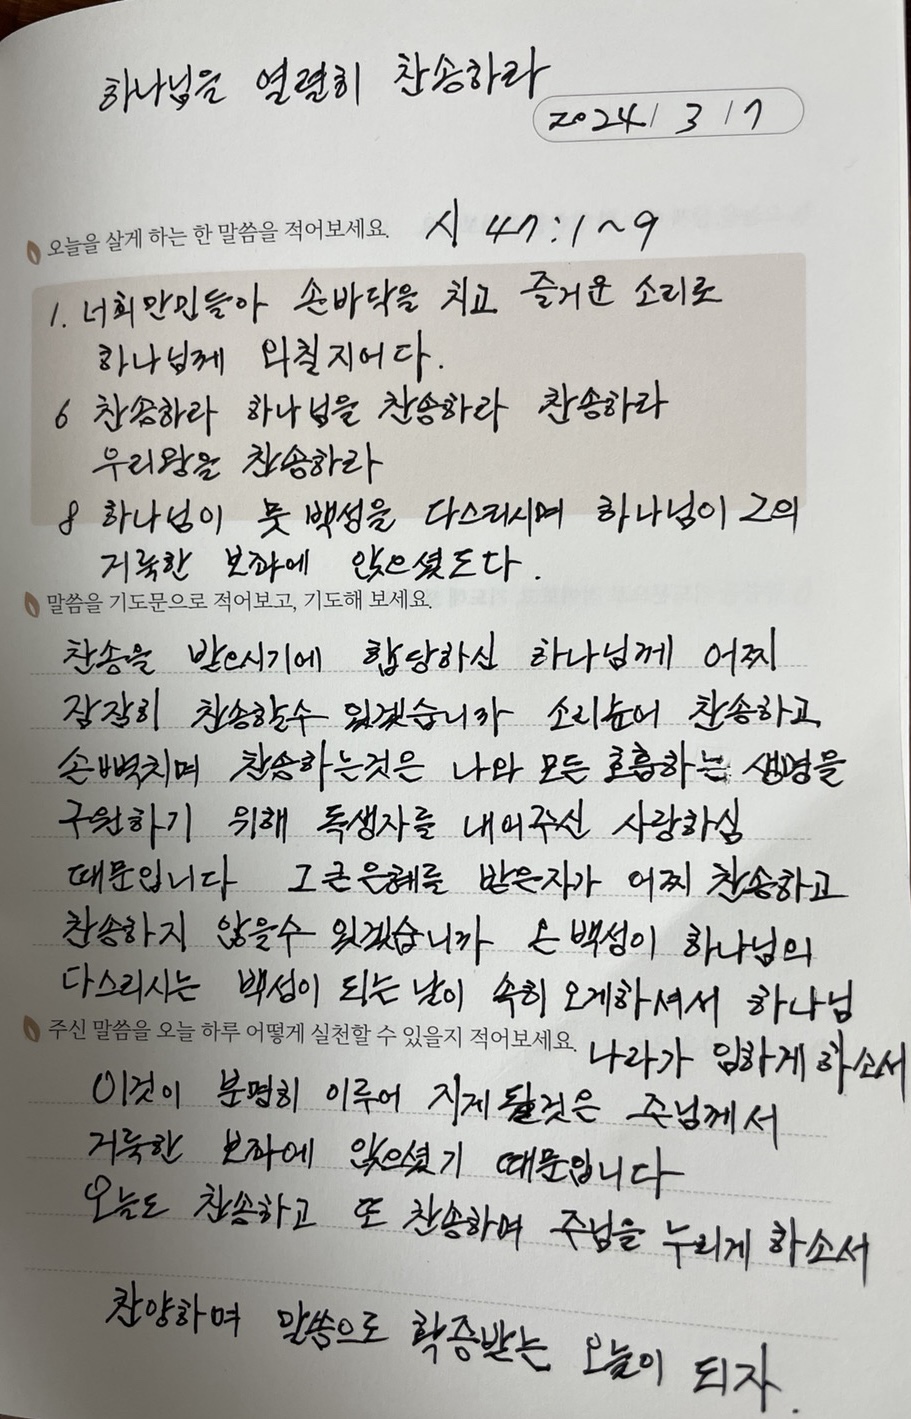 하나님을 열렬히 찬송하라
2024 / 3 / 7
오늘을 살게 하는 한 말씀을 적어보세요. 시 47:1~9
1. 너희만민들아 손바닥을 치고 즐거운 소리로
하나님께 외칠지어다.
6 찬송하라 하나님을 찬송하라 찬송하라
우리왕을 찬송하라
8 하나님이 뭇 백성을 다스리시며 하나님이 그의
거룩한 보좌에 앉으셨도다.
말씀을 기도문으로 적어보고, 기도해 보세요.
찬송을 받으시기에 합당하신 하나님께 어찌
잠잠히 찬송할수 있겠습니까 소리높여 찬송하고
손뼉치며 찬송하는것은 나와 모든 호흡하는 생명을
구원하기 위해 독생자를 내어주신 사랑하심
때문입니다 그 큰은혜를 받은자가 어찌 찬송하고
찬송하지 않을수 있겠습니까 온 백성이 하나님의
다스리시는 백성이 되는 날이 속히 오게하셔서 하나님
주신 말씀을 오늘 하루 어떻게 실천할 수 있을지 적어보세요.
나라가 임하게 하소서
이것이 분명히 이루어 지게 될것은 주님께서
거룩한 보좌에 앉으셨기 때문입니다
오늘도 찬송하고 또 찬송하며 주님을 누리게 하소서
찬양하며 말씀으로 확증받는 오늘이 되자.